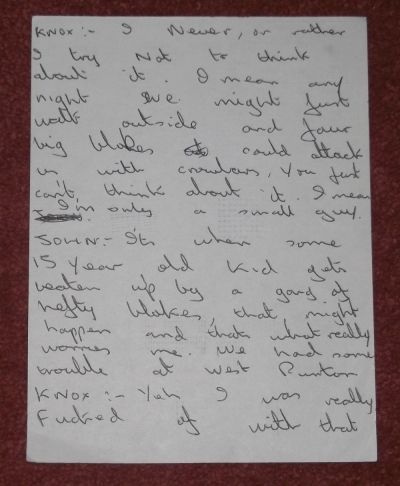 KNOX:- I Never, or rather
I try Not to think
about it. I mean any
night we might just
walk outside and four
big blokes could attack
us with crowbars. You just
can't think about it. I mean
I'm only a small guy.
JOHN:- It's when some
15 year old kid gets
beaten up by a gang of
hefty blokes, that might
happen and thats what really
worries me. We had some
trouble at West Runton
KNOX:- Yeh I was really
Fucked of with that